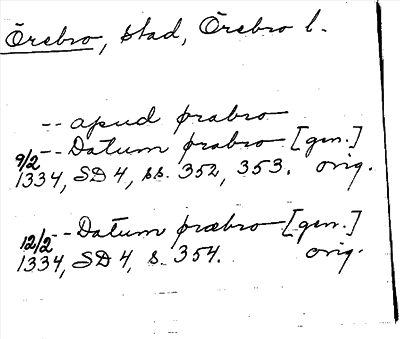 Örebro, stad, Örebro l.
-- apud ørabro
9/2 -- Datum ørabro [gen.]
1334, SD 4, ss. 352, 353. orig.
12/2 -- Datum ørabro [gen.]
1334, SD 4, s. 354. orig.